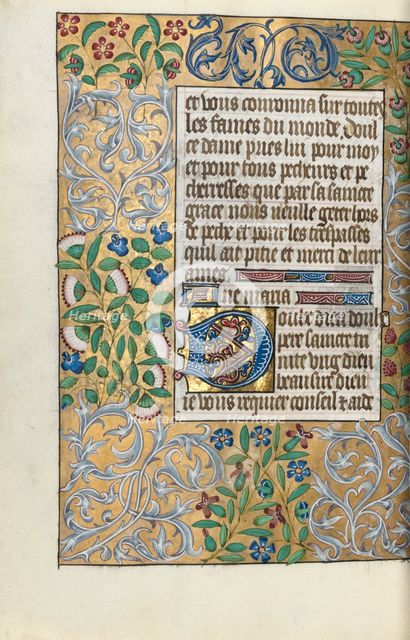 et vous couronna sur toutes
les fames du monde, doul
ce dame pries lui pour moy
et pour tous pecheurs et pe
cherresses que par sa saincte
grace nous veille geter hors
de peche et pour les trespasses
quil ait pitie et merci de leurs
ames
Aue maria
Doulx dieu doulx
pere saincte tri
nite vng dieu
beau sire dieu
ie vous requier conseil et aide
Heritage
Heritage
Heritage